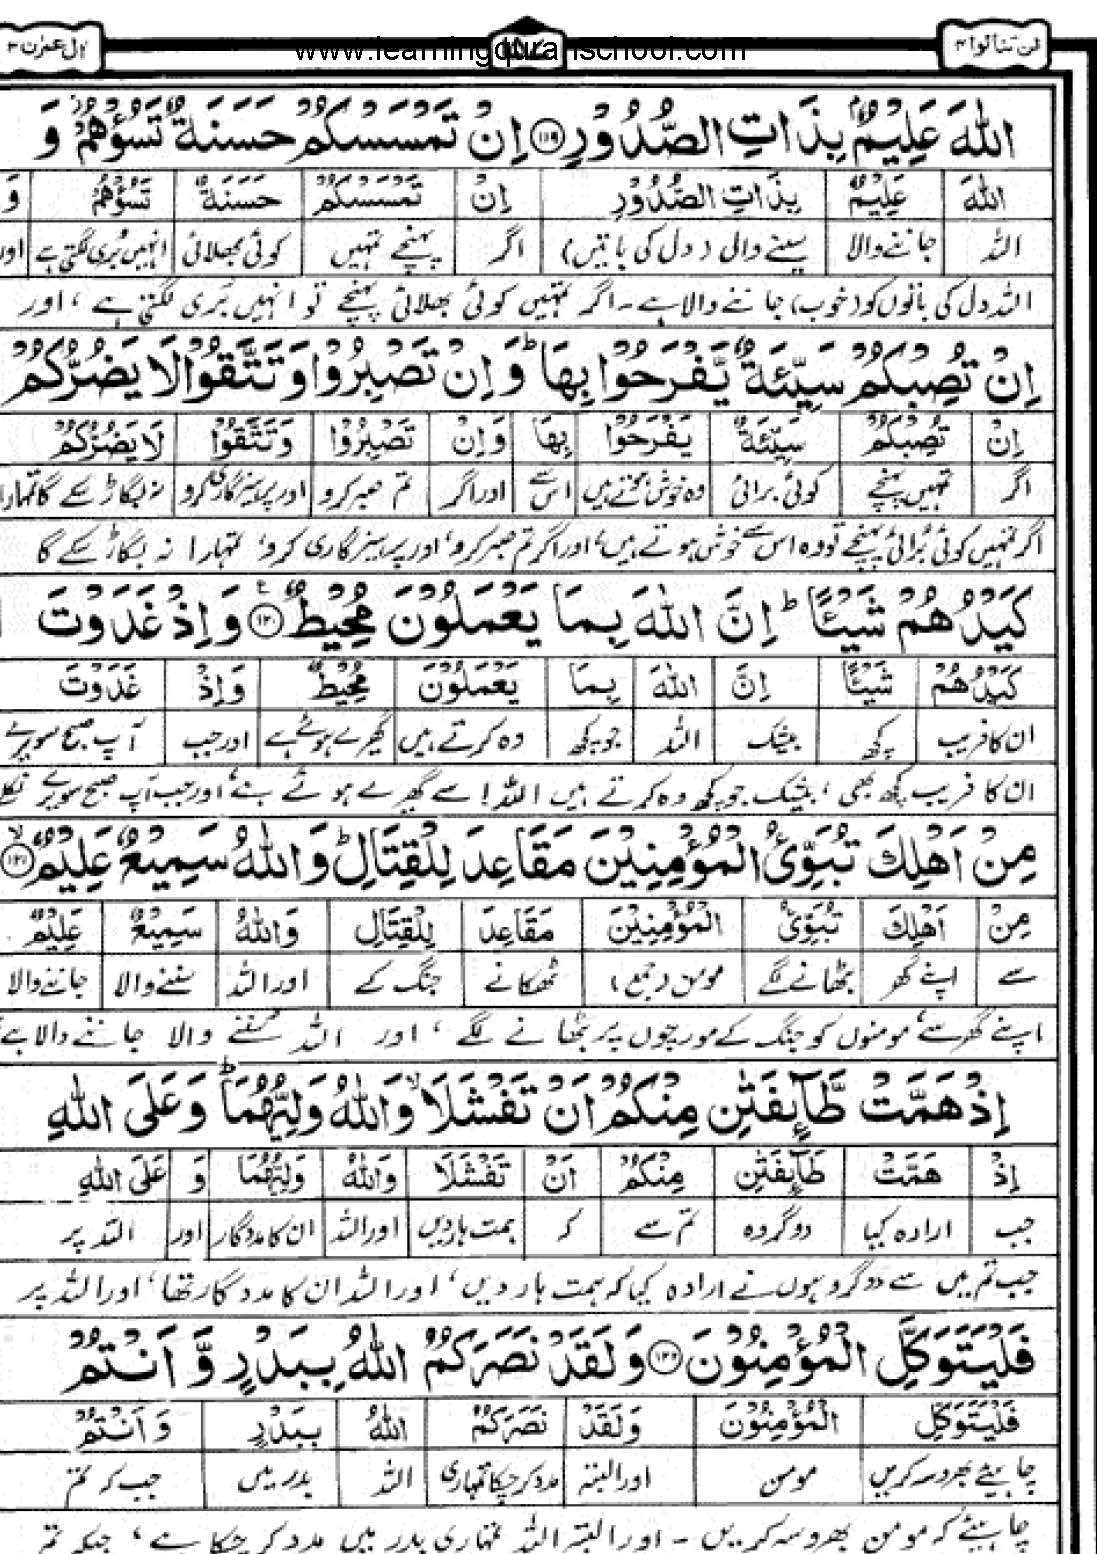 لن تنالوا ۴
www.learningquranschool.com
اٰل عمرٰن ۳
اللّٰهَ عَلِيْمٌۢ بِذَاتِ الصُّدُوْرِ ﴿۱۱۹﴾ اِنْ تَمْسَسْكُمْ حَسَنَةٌ تَسُؤْهُمْ وَ
اللّٰهَ عَلِيْمٌ بِذَاتِ الصُّدُوْرِ اِنْ تَمْسَسْكُمْ حَسَنَةٌ تَسُؤْهُمْ وَ
اللہ جاننے والا سینے والی (دل کی باتیں) اگر پہنچے تمہیں کوئی بھلائی انہیں بُری لگتی ہے اور
اللہ دل کی باتوں کو (خوب) جاننے والا ہے۔ اگر تمہیں کوئی بھلائی پہنچے تو انہیں بُری لگتی ہے ، اور
اِنْ تُصِبْكُمْ سَيِّئَةٌ يَّفْرَحُوْا بِهَا ؕ وَاِنْ تَصْبِرُوْا وَتَتَّقُوْا لَا يَضُرُّكُمْ
اِنْ تُصِبْكُمْ سَيِّئَةٌ يَفْرَحُوْا بِهَا وَاِنْ تَصْبِرُوْا وَتَتَّقُوْا لَا يَضُرُّكُمْ
اگر تمہیں پہنچے کوئی برائی وہ خوش ہوتے ہیں اس سے اور اگر تم صبر کرو اور پرہیزگاری کرو نہ بگاڑ سکے گا تمہارا
اگر تمہیں کوئی بُرائی پہنچے تو وہ اس سے خوش ہوتے ہیں، اور اگر تم صبر کرو، اور پرہیزگاری کرو، تمہارا نہ بگاڑ سکے گا
كَيْدُهُمْ شَيْئًا ؕ اِنَّ اللّٰهَ بِمَا يَعْمَلُوْنَ مُحِيْطٌ ﴿۱۲۰﴾ وَاِذْ غَدَوْتَ
كَيْدُهُمْ شَيْئًا اِنَّ اللّٰهَ بِمَا يَعْمَلُوْنَ مُحِيْطٌ وَاِذْ غَدَوْتَ
ان کا فریب کچھ بیشک اللہ جو کچھ وہ کرتے ہیں گھیرے ہوئے ہے اور جب آپ صبح سویرے
ان کا فریب کچھ بھی ، بیشک جو کچھ وہ کرتے ہیں اللہ اسے گھیرے ہوئے ہے، اور جب آپ صبح سویرے نکلے
مِنْ اَهْلِكَ تُبَوِّئُ الْمُؤْمِنِيْنَ مَقَاعِدَ لِلْقِتَالِ ؕ وَاللّٰهُ سَمِيْعٌ عَلِيْمٌ ﴿۱۲۱﴾
مِنْ اَهْلِكَ تُبَوِّئُ الْمُؤْمِنِيْنَ مَقَاعِدَ لِلْقِتَالِ وَاللّٰهُ سَمِيْعٌ عَلِيْمٌ
سے اپنے گھر بٹھانے لگے مومن (جمع) ٹھکانے جنگ کے اور اللہ سننے والا جاننے والا
اپنے گھر سے، مومنوں کو جنگ کے مورچوں پر بٹھانے لگے ، اور اللہ سننے والا جاننے والا ہے
اِذْ هَمَّتْ طَّآئِفَتٰنِ مِنْكُمْ اَنْ تَفْشَلَا ۙ وَاللّٰهُ وَلِيُّهُمَا ؕ وَعَلَى اللّٰهِ
اِذْ هَمَّتْ طَآئِفَتٰنِ مِنْكُمْ اَنْ تَفْشَلَا وَاللّٰهُ وَلِيُّهُمَا وَ عَلَى اللّٰهِ
جب ارادہ کیا دو گروہ تم سے کہ ہمت ہار دیں اور اللہ ان کا مددگار اور اللہ پر
جب تم میں سے دو گروہوں نے ارادہ کیا کہ ہمت ہار دیں، اور اللہ ان کا مددگار تھا، اور اللہ پر
فَلْيَتَوَكَّلِ الْمُؤْمِنُوْنَ ﴿۱۲۲﴾ وَلَقَدْ نَصَرَكُمُ اللّٰهُ بِبَدْرٍ وَّ اَنْتُمْ
فَلْيَتَوَكَّلِ الْمُؤْمِنُوْنَ وَلَقَدْ نَصَرَكُمُ اللّٰهُ بِبَدْرٍ وَ اَنْتُمْ
چاہیئے بھروسہ کریں مومن اور البتہ مدد کرچکا تمہاری اللہ بدر میں جب کہ تم
چاہیئے کہ مومن بھروسہ کریں ۔ اور البتہ اللہ تمہاری بدر میں مدد کر چکا ہے ، جبکہ تم